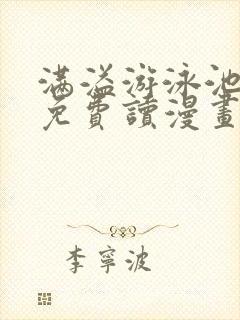 滿溢游泳池
免費讀漫畫
李寧波